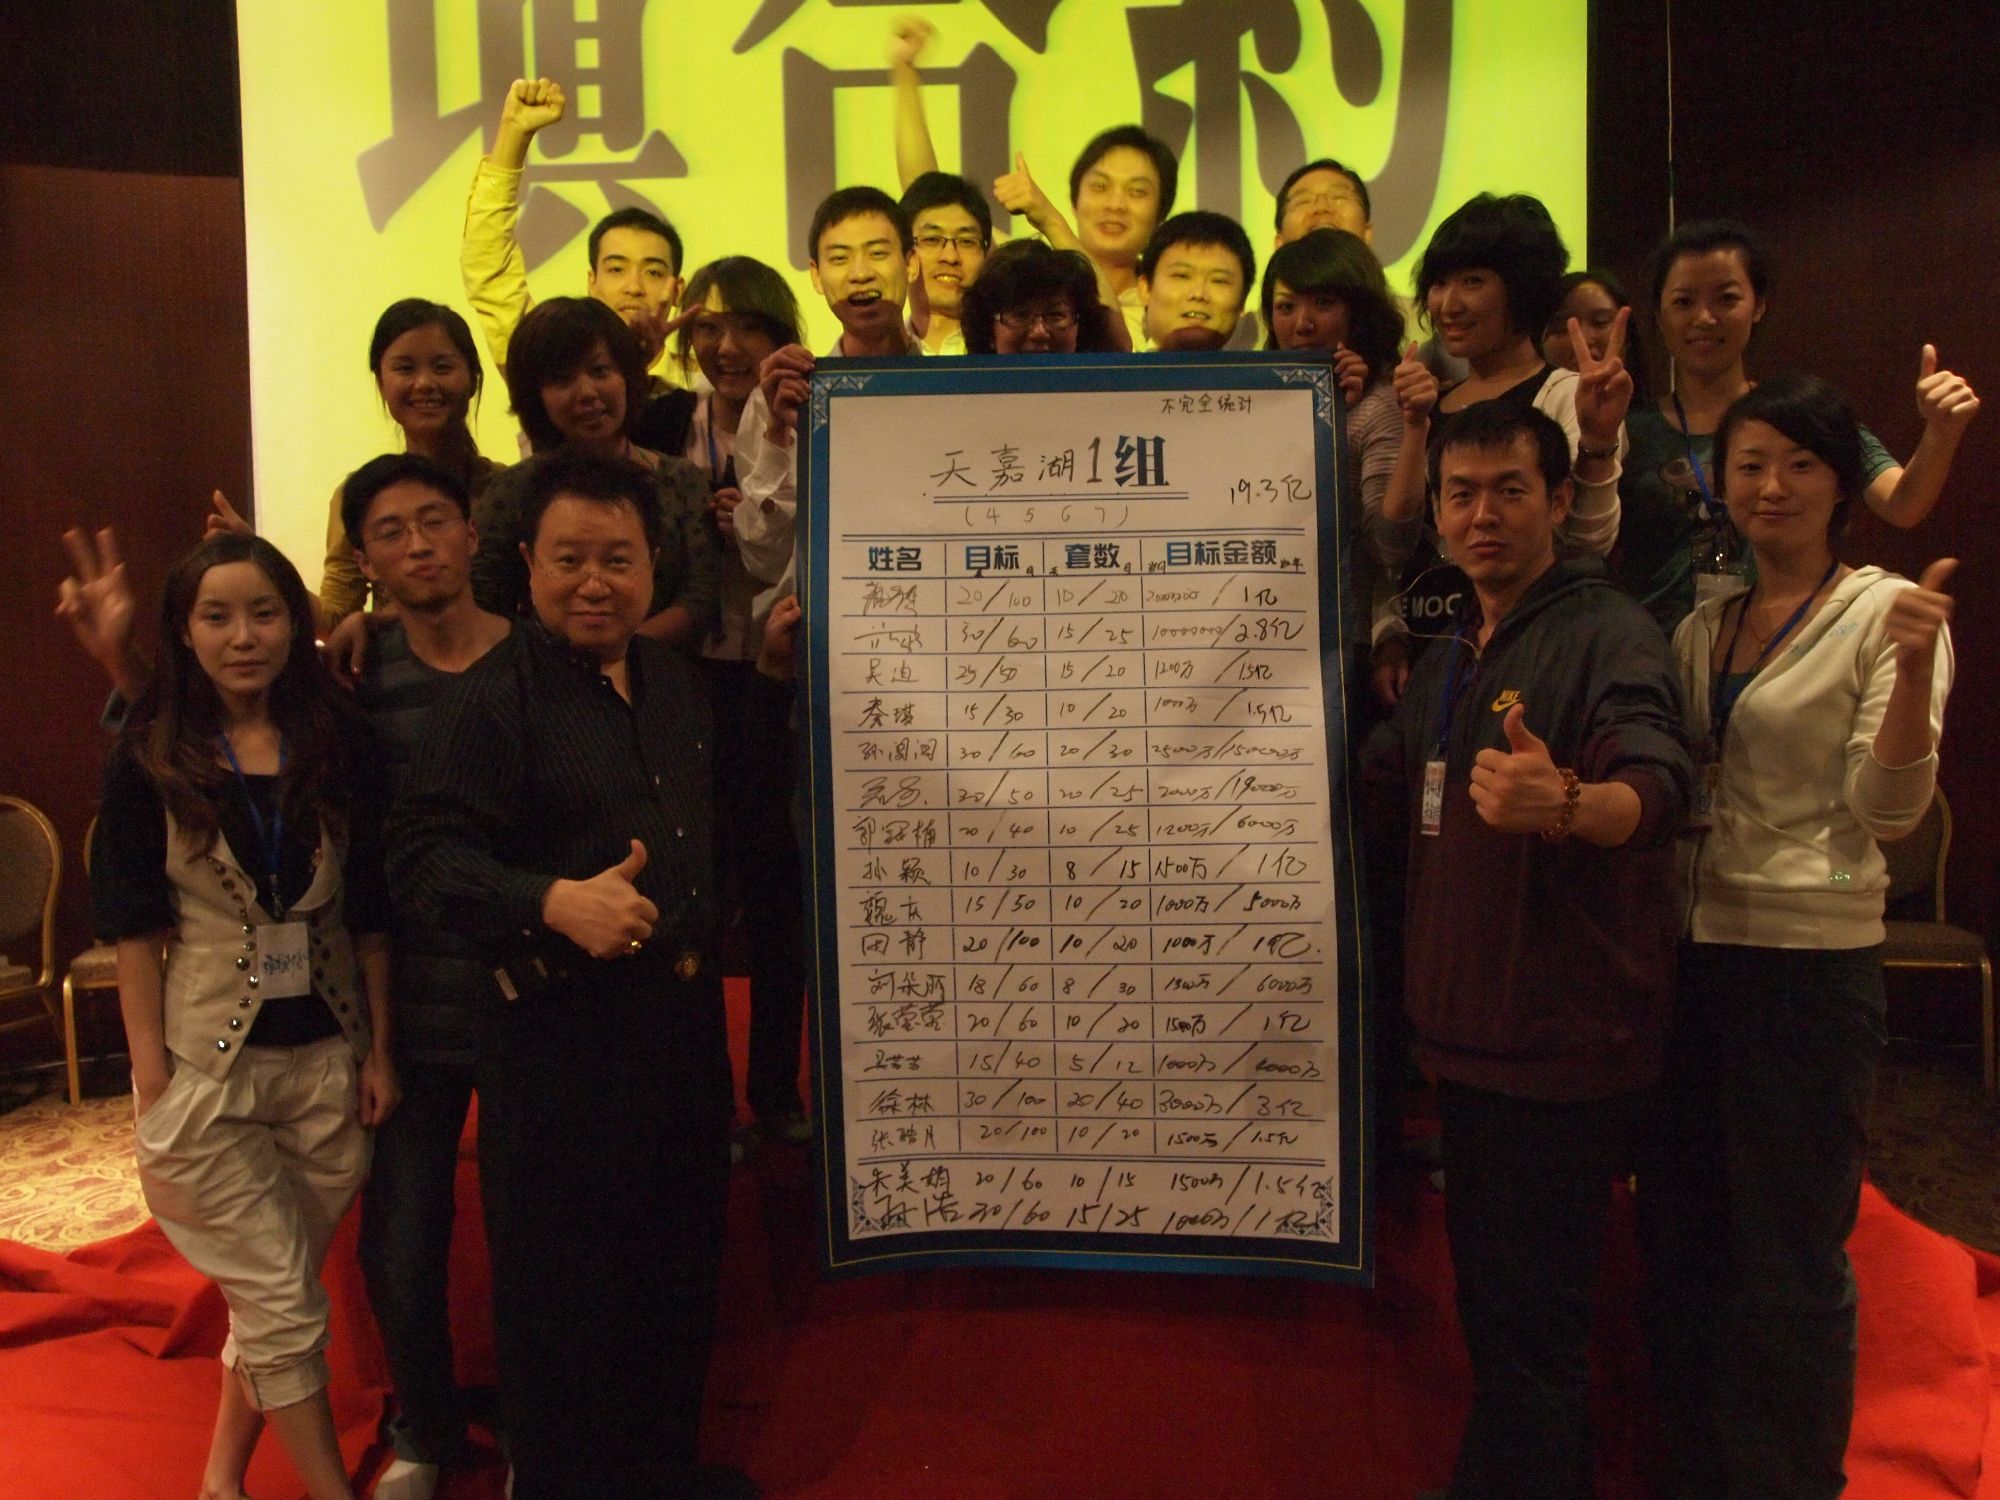 填合利
不完全统计
天嘉湖1组
19.3亿
(4 5 6 7)
姓名 目标 套数 目标金额
20/100 10/20 /1亿
30/60 15/25 10000000/2.8亿
吴迪 25/50 15/20 1200万/1.5亿
秦琪 15/30 10/20 1000万/1.5亿
孙闯闯 30/60 20/30 2500万/150000万
30/50 20/25 2000万/19000万
郭冠楠 20/40 10/25 1200万/6000万
孙颖 10/30 8/15 1500万/1亿
魏 15/50 10/20 1000万/5000万
田静 20/100 10/20 1000万/1亿.
刘朵朵 18/60 8/30 /6000万
张莹莹 20/60 10/20 1500万/1亿
吴芸芸 15/40 5/12 1000万/4000万
徐林 30/100 20/40 3000万/3亿
张皓月 20/100 10/20 1500万/1.5亿
朱美娟 20/60 10/15 1500万/1.5亿
孙浩 30/60 15/25 1000万/1亿
NIKE
E MOC